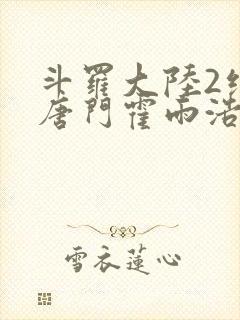 斗羅大陸2絕
唐門霍雨浩
雪衣蓮心